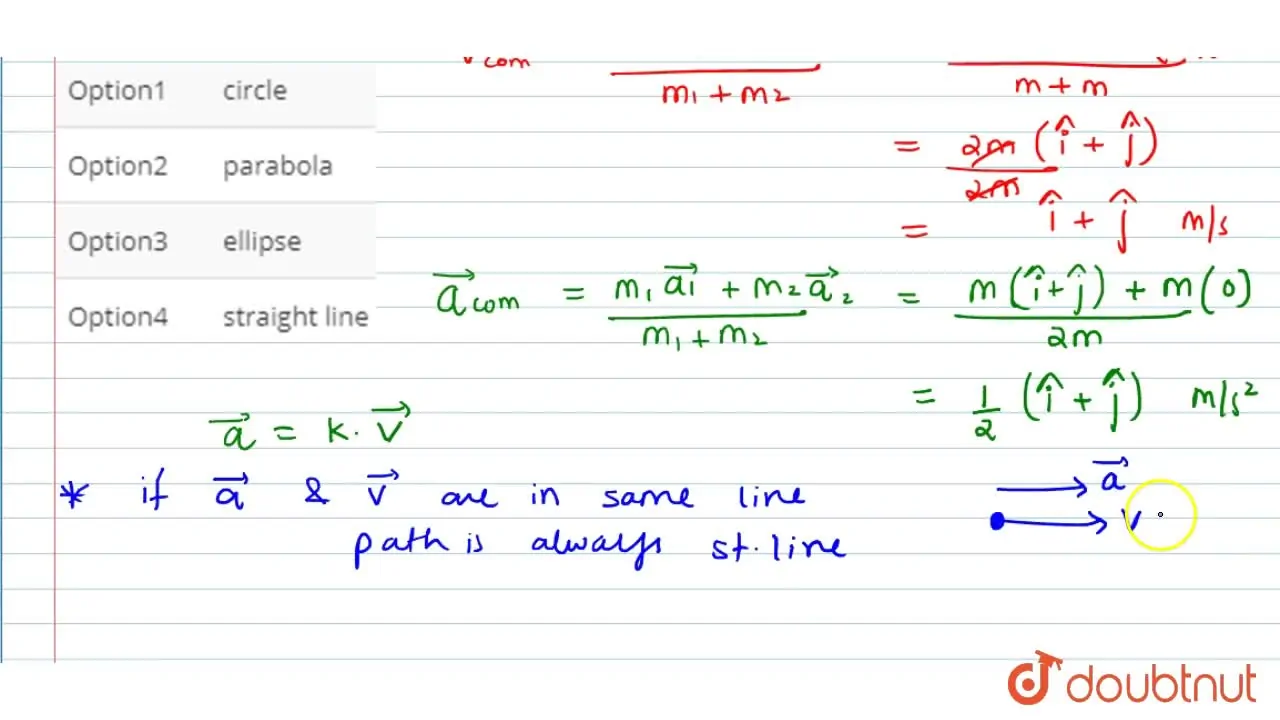 Option1 circle
Option2 parabola
Option3 ellipse
Option4 straight line
com
m₁ + m₂
m + m
= 2m (î + ĵ)
2m
= î + ĵ m/s
a⃗ com = m₁ a⃗₁ + m₂ a⃗₂ = m(î+ĵ) + m(0)
m₁ + m₂ 2m
= 1/2 (î + ĵ) m/s²
a⃗ = k. v⃗
* if a⃗ & v⃗ are in same line
path is always st. line
a⃗
v
doubtnut